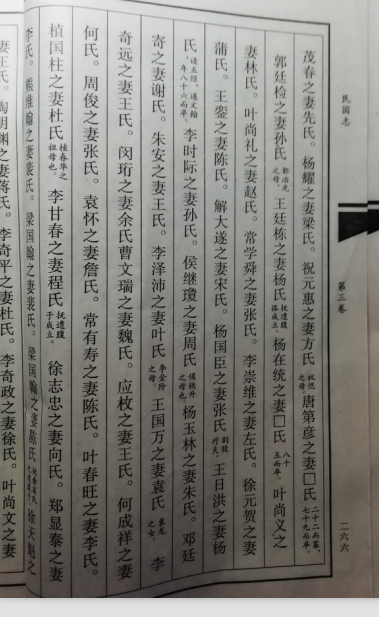 民国志
第三卷
二六六
茂春之妻先氏。杨耀之妻梁氏。祝元惠之妻方氏祝恺之母。唐第彦之妻□氏二十二而寡，七十九而卒。
郭廷检之妻孙氏郭治光之母。王廷栋之妻杨氏抚遗腹孤成立。杨在统之妻□氏八十五而卒。叶尚义之
妻林氏。叶尚礼之妻赵氏。常学舜之妻张氏。李崇维之妻左氏。徐元贺之妻
蒲氏。王銮之妻陈氏。解大遂之妻宋氏。杨国臣之妻张氏割股疗夫。王日洪之妻杨
氏读五经，通文翰，年八十六而卒。李时际之妻孙氏。侯继瓊之妻周氏侯秩升之母也。杨玉林之妻朱氏。邓廷
寄之妻谢氏。朱安之妻王氏。李泽沛之妻叶氏李金阶之母。王国万之妻袁氏袁龙之女。李
奇远之妻王氏。闵珩之妻余氏曹文瑞之妻魏氏。应枚之妻王氏。何成祥之妻
何氏。周俊之妻张氏。袁怀之妻詹氏。常有寿之妻陈氏。叶春旺之妻李氏。
植国柱之妻杜氏植春华之祖母也。李甘春之妻程氏抚遗腹子成立。徐志忠之妻向氏。郑显泰之妻
李氏。熊维翰之妻裴氏。梁国翰之妻裴氏。梁国翰之妻陈氏 徐天魁之
妻王氏。陶明渊之妻蒋氏。李奇平之妻杜氏。李奇政之妻徐氏。叶尚文之妻